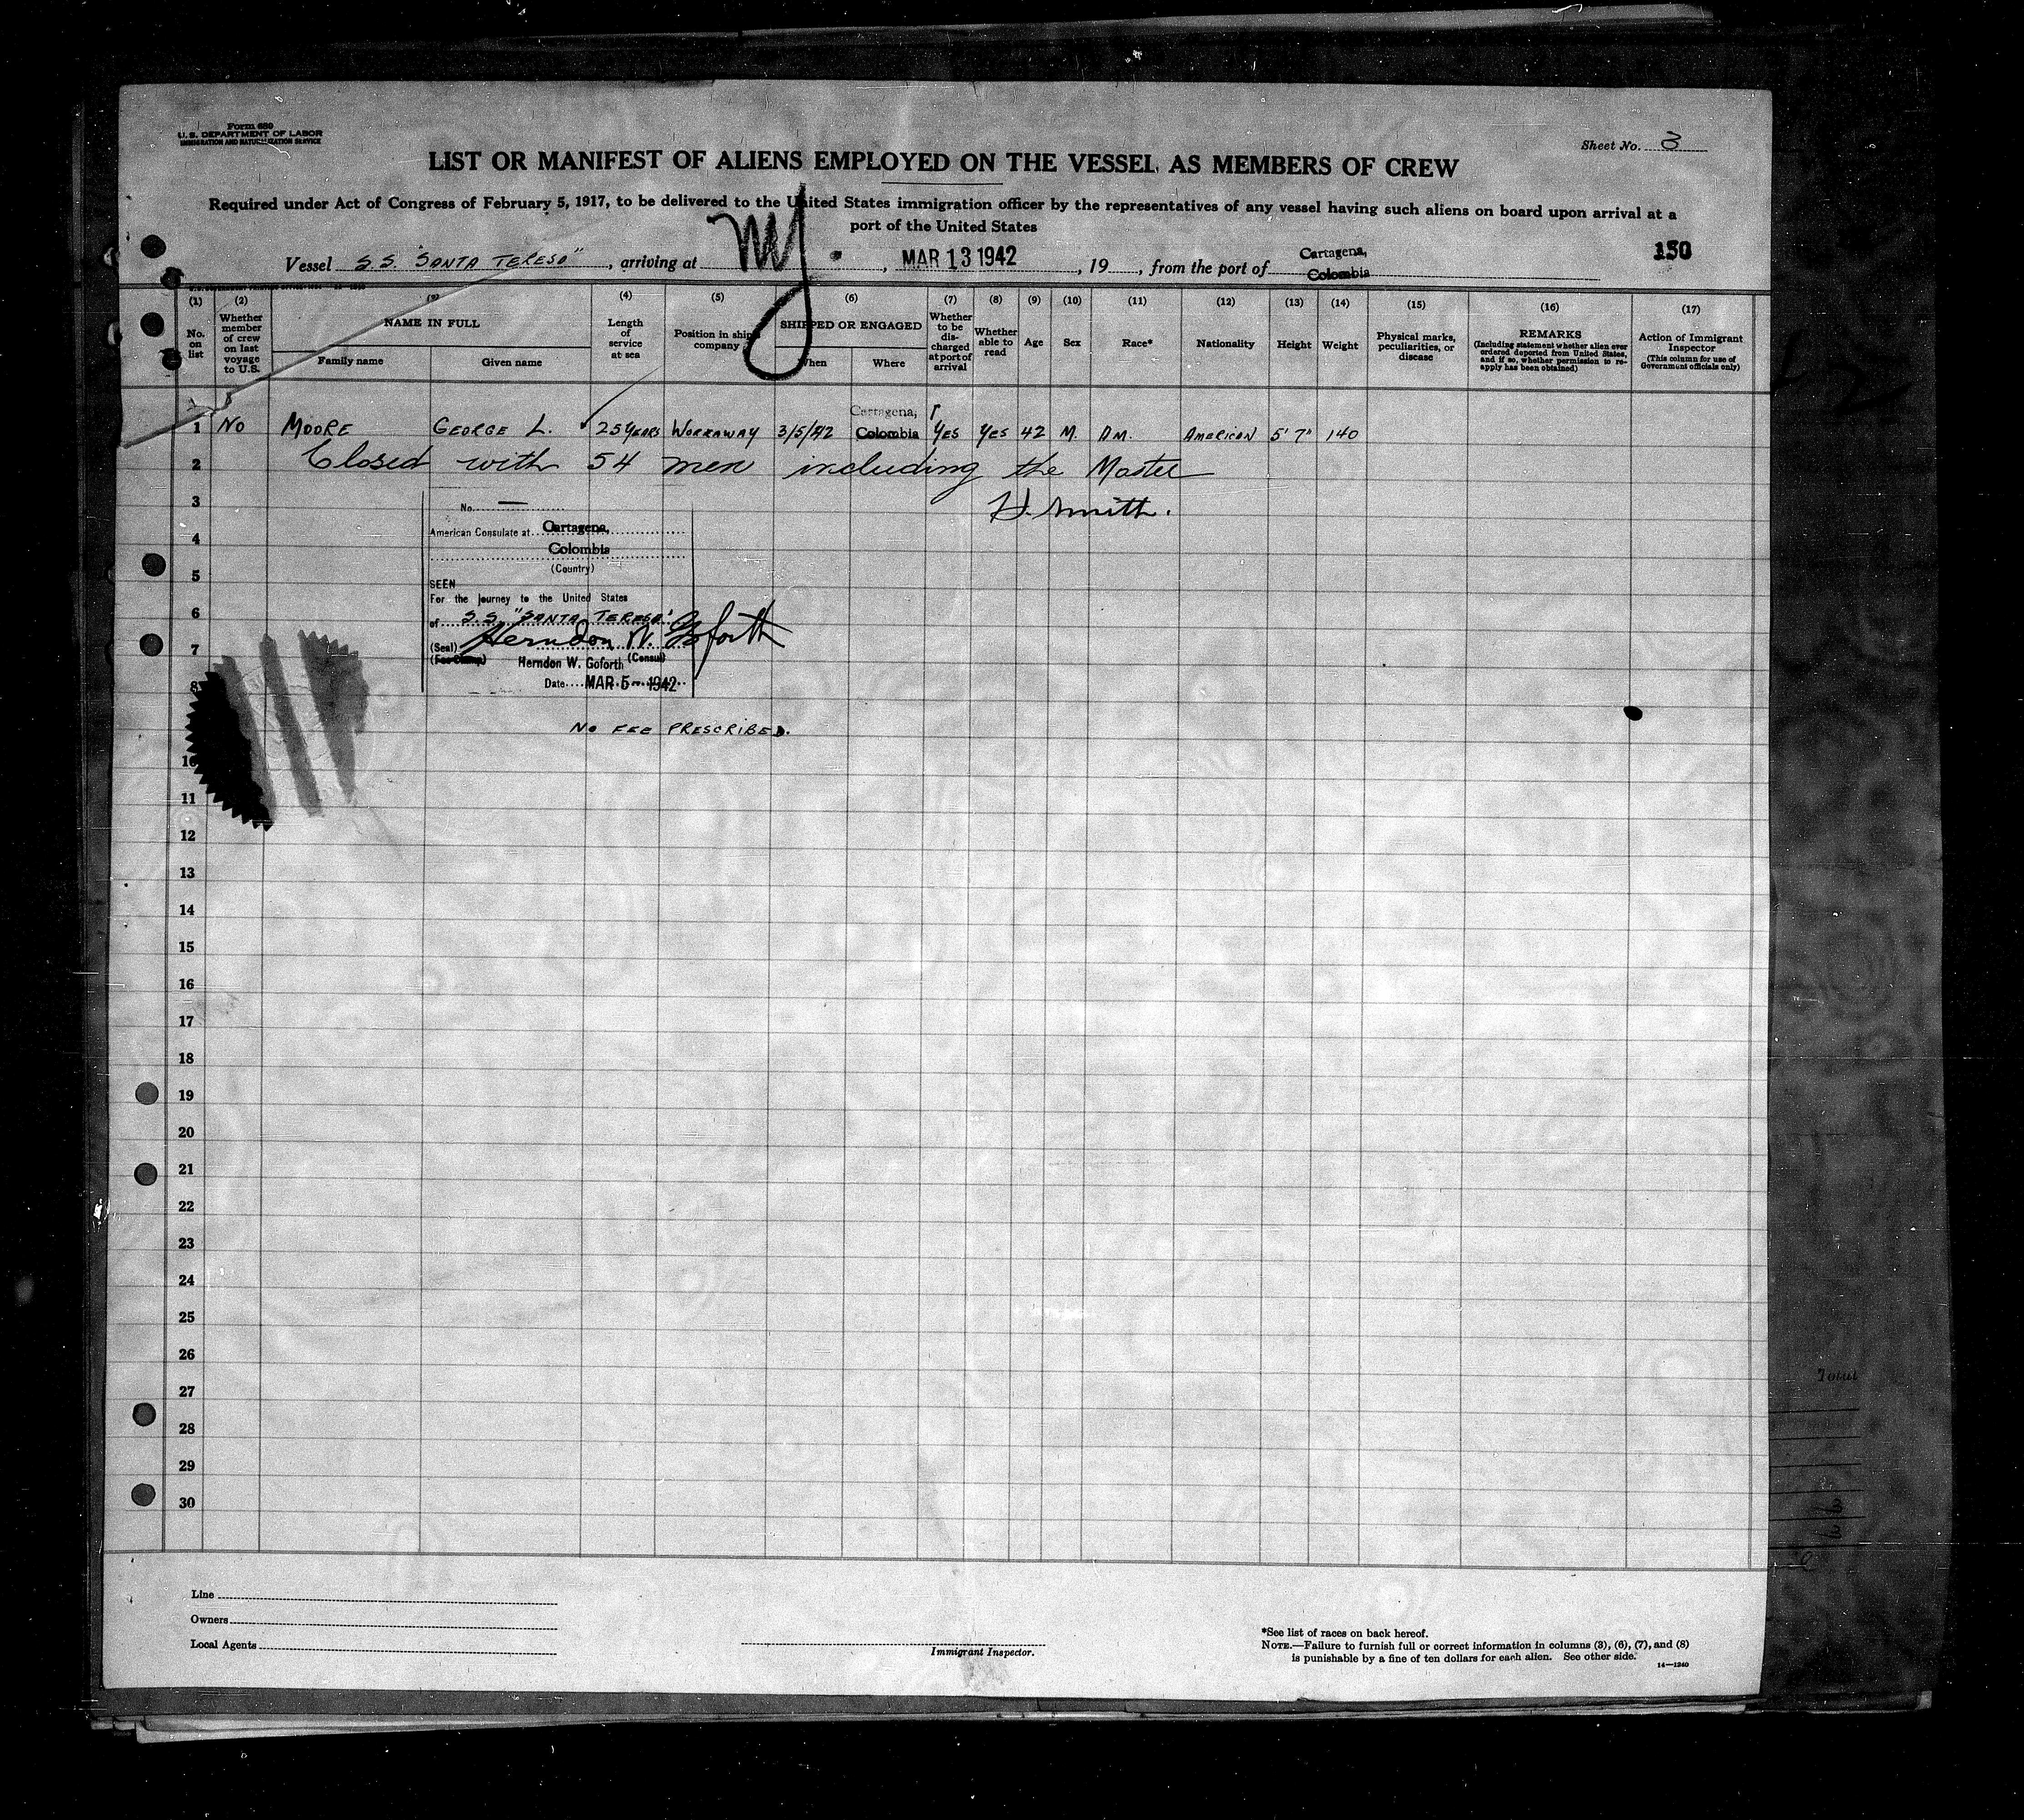 Form 680
U. S. DEPARTMENT OF LABOR
IMMIGRATION AND NATURALIZATION SERVICE
Sheet No. 3
LIST OR MANIFEST OF ALIENS EMPLOYED ON THE VESSEL AS MEMBERS OF CREW
Required under Act of Congress of February 5, 1917, to be delivered to the United States immigration officer by the representatives of any vessel having such aliens on board upon arrival at a
port of the United States
Vessel S.S. "SANTA TERESA", arriving at NY., MAR 13 1942, 19, from the port of Cartagena, Colombia
150
(1) No. on list
(2) Whether member of crew on last voyage to U.S.
(3) NAME IN FULL
Family name
Given name
(4) Length of service at sea
(5) Position in ship's company
(6) SHIPPED OR ENGAGED
When
Where
(7) Whether to be discharged at port of arrival
(8) Whether able to read
(9) Age
(10) Sex
(11) Race*
(12) Nationality
(13) Height
(14) Weight
(15) Physical marks, peculiarities, or disease
(16) REMARKS
(Including statement whether alien ever ordered deported from United States, and if so, whether permission to reapply has been obtained)
(17) Action of Immigrant Inspector
(This column for use of Government officials only)
1 NO MOORE GEORGE L. 25 YEARS WORKAWAY 3/5/42 Cartagena, Colombia YES YES 42 M. AM. AMERICAN 5' 7" 140
2 Closed with 54 men including the Master
3 H. Smith.
No. —
American Consulate at Cartagena,
4
Colombia
(Country)
5
SEEN
For the journey to the United States
6
of S.S. "SANTA TERESA"
Herndon W. Goforth
(Seal)
7
(Fee Stamp) Herndon W. Goforth (Consul)
8
Date MAR 5 - 1942
NO FEE PRESCRIBED.
10
11
12
13
14
15
16
17
18
19
20
21
22
23
24
25
26
27
28
29
30
Total
Line
Owners
Local Agents
Immigrant Inspector.
*See list of races on back hereof.
NOTE.—Failure to furnish full or correct information in columns (3), (6), (7), and (8)
is punishable by a fine of ten dollars for each alien. See other side.
14—1240